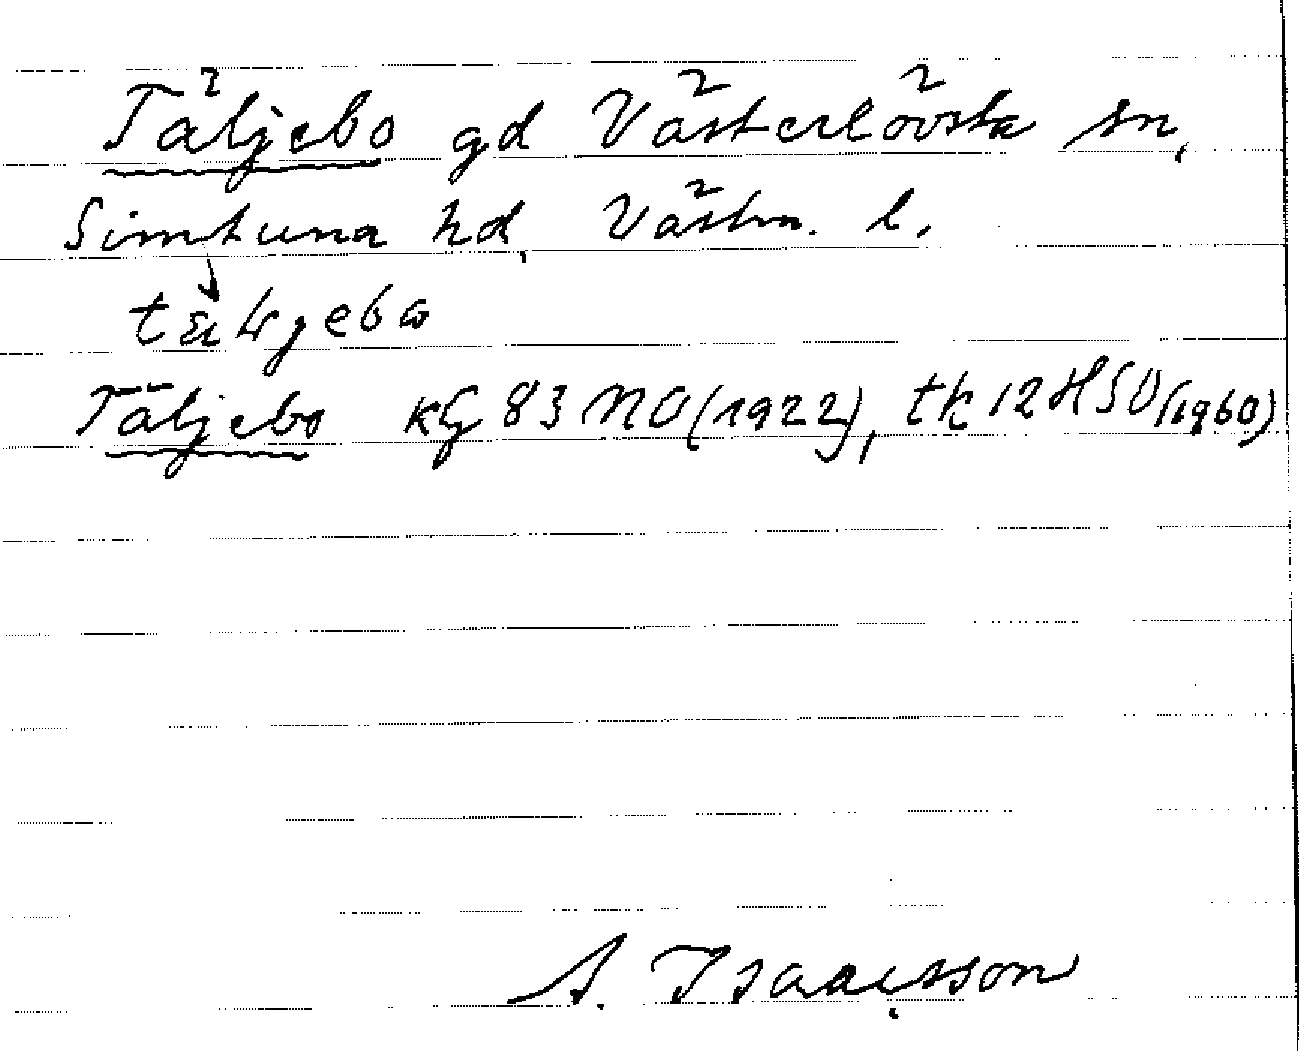 Täljebo gd Västerlövsta sn,
Simtuna hd, Västm. l.
Täljebo kG 83 NO (1922), tk 12 H SO (1960)
A. Isaacsson